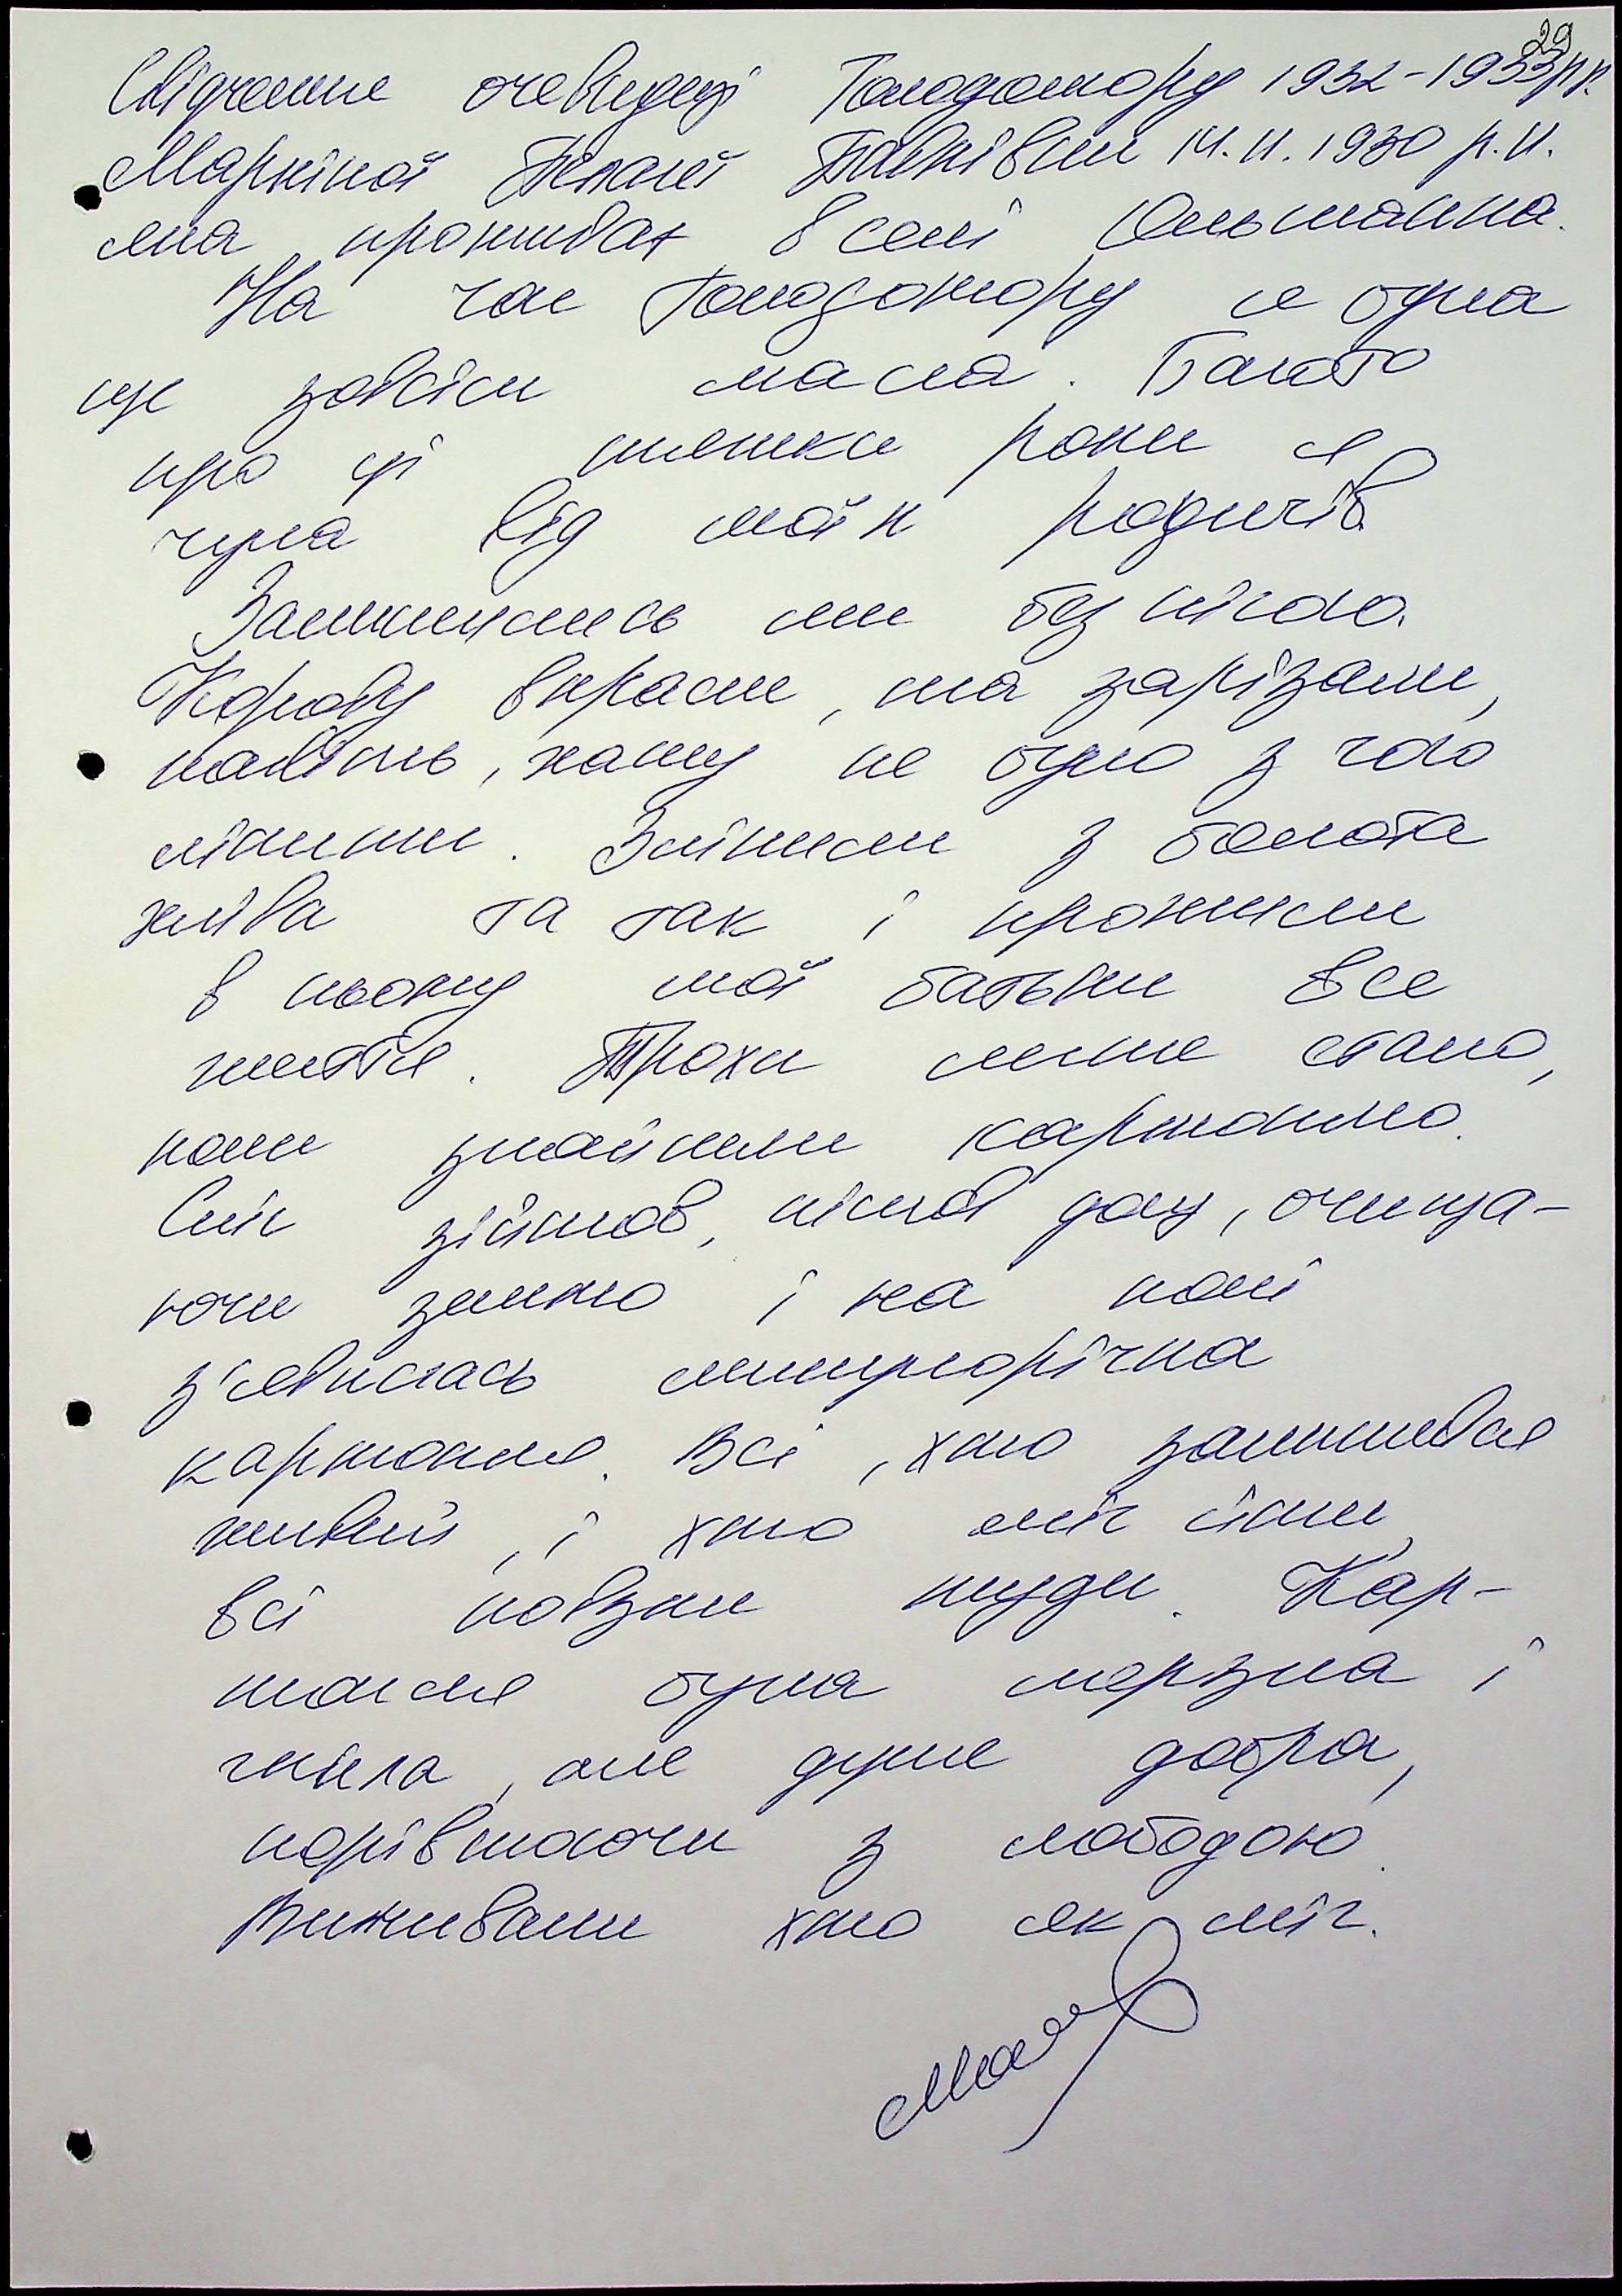 29
Свідчення очевидця Голодомору 1932-1933рр.
Маркіної Пелагеї Павлівни 14.11.1930 р.н.
яка проживає в селі Ольшанка.
На час Голодомору я була
ще зовсім мала. Багато
про ці тяжкі роки я
чула від моїх родичів.
Залишились ми без нічого.
Корову вкрали, та зарізали,
навіть, хату не було з чого
ліпити. Зліпили з болота
хліва та так і прожили
в ньому мої батьки все
життя. Трохи легше стало,
коли знайшли картоплю.
Сніг зійшов, пішов дощ, очища-
ючи землю і на полі
з'явилась минулорічна
картопля. Всі, хто залишився
живий, і хто міг йти,
всі повзли туди. Кар-
топля була мерзла і
гнила, але дуже добра,
порівнюючи з лободою.
Виживали хто як міг.